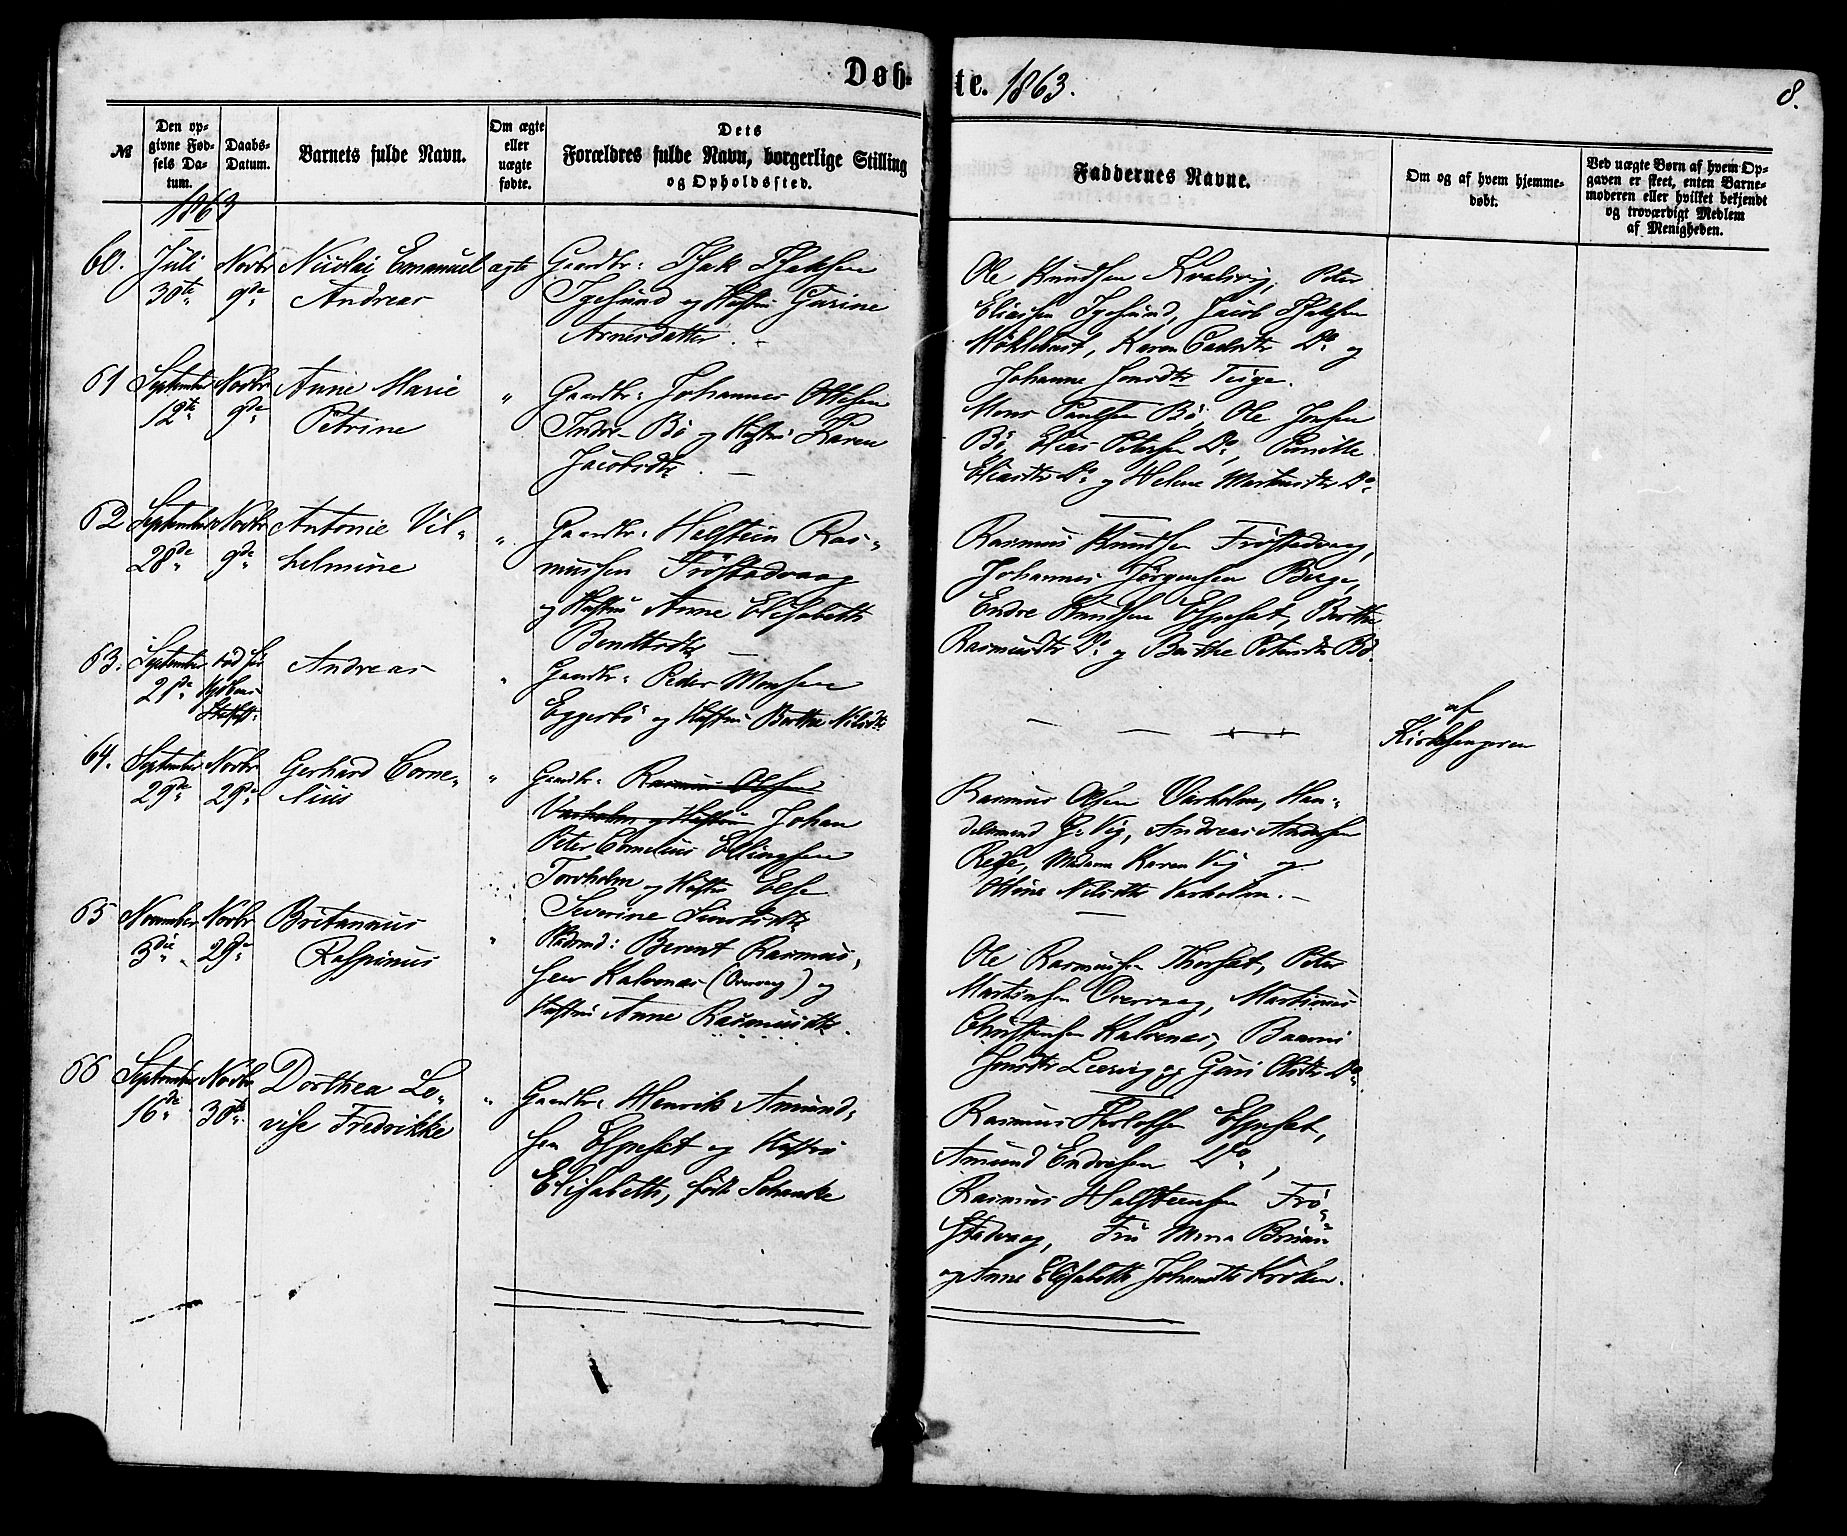 Døb-
te. 1863.
8.
№
Den op-
givne Fød-
sels Da-
tum.
Daabs-
Datum.
Barnets fulde Navn.
Om ægte
eller
uægte
fødte.
Dets
Forældres fulde Navn, borgerlige Stilling
og Opholdssted.
Faddernes Navne.
Om og af hvem hjemme-
døbt.
Ved uægte Børn af hvem Op-
gaven er skeet, enten Barne-
moderen eller hvilket bekjendt
og troværdigt Medlem
af Menigheden.
1863
60.
Juli
30te
Novbr
9de
Nicolai Emanuel
Andreas
ægte
Gaardbr: Isak Isaksen
Igesund og Hustru Garine
Arnesdatter.
Ole Knudsen Kvalsvig, Peter
Eliassen Igesund, Jacob Isaksen
Møklebust, Karen Do og
Johanne Jonsdtr Teige.
61
September
12te
Novbr
9de
Anne Marie
Petrine
"
Gaardbr: Johannes Ottesen
Indre-Bö og Hustru Karen
Jacobsdtr.
Mons Paulsen Bö, Ole Jonsen
Bö, Elias Petersen Do, Pernille
Eliasdtr Do og Helene Martinsdtr Do.
62
September
28de
Novbr
9de
Antonie Vil-
helmine
"
Gaardbr: Halstein Ras-
mussen Fröstadvaag
og Hustru Anne Elisabeth
Bendtsdtr
Rasmus Knudsen Fröstadvaag,
Johannes Jörgensen Berge,
Endre Knudsen Espeset, Berthe
Rasmusdtr Do og Berthe Petersdtr Bö.
63.
September
21de
Andreas
"
Gaardbr: Peder Monsen
Eggesbö og Hustru Berthe Nilsdtr
af
Kirkesangeren
64.
September
29de
Novbr
29de
Gerhard Corne-
lius
"
Gaardbr: Rasmus Olsen
Varholm og Hustru Johan
Peter Cornelius Ellingsen
Torvholm og Hustru Else
Severine Sivertsdtr
Rasmus Olsen Varholm, Han-
delsmand P. Vig, Andreas Andersen
Madame Karen Vig og
Oline Nilsdtr Varholm.
65
November
5die
Novbr
29de
Britannus
Raspinus
"
Berent Rasmus-
sen Kalvenes (Overvaag) og
Hustru Anne Rasmusdtr.
Ole Rasmussen Thorset, Peter
Martinsen Overvaag, Martinus
Christensen Kalvenes,
Jonsdtr Leervig og Guri Olsdtr Do.
66
September
16de
Novbr
30te
Dorthea Lo-
vise Fredrikke
"
Gaardbr: Henrik Amund-
sen Espeset og Hustru
Elisabeth, födt Schanke
Rasmus Espeset,
Amund Endresen Do,
Rasmus Halsteensen Frö-
stadvaag, Fru Mina Bruun
og Anne Elisabeth Johansdtr Kröken.